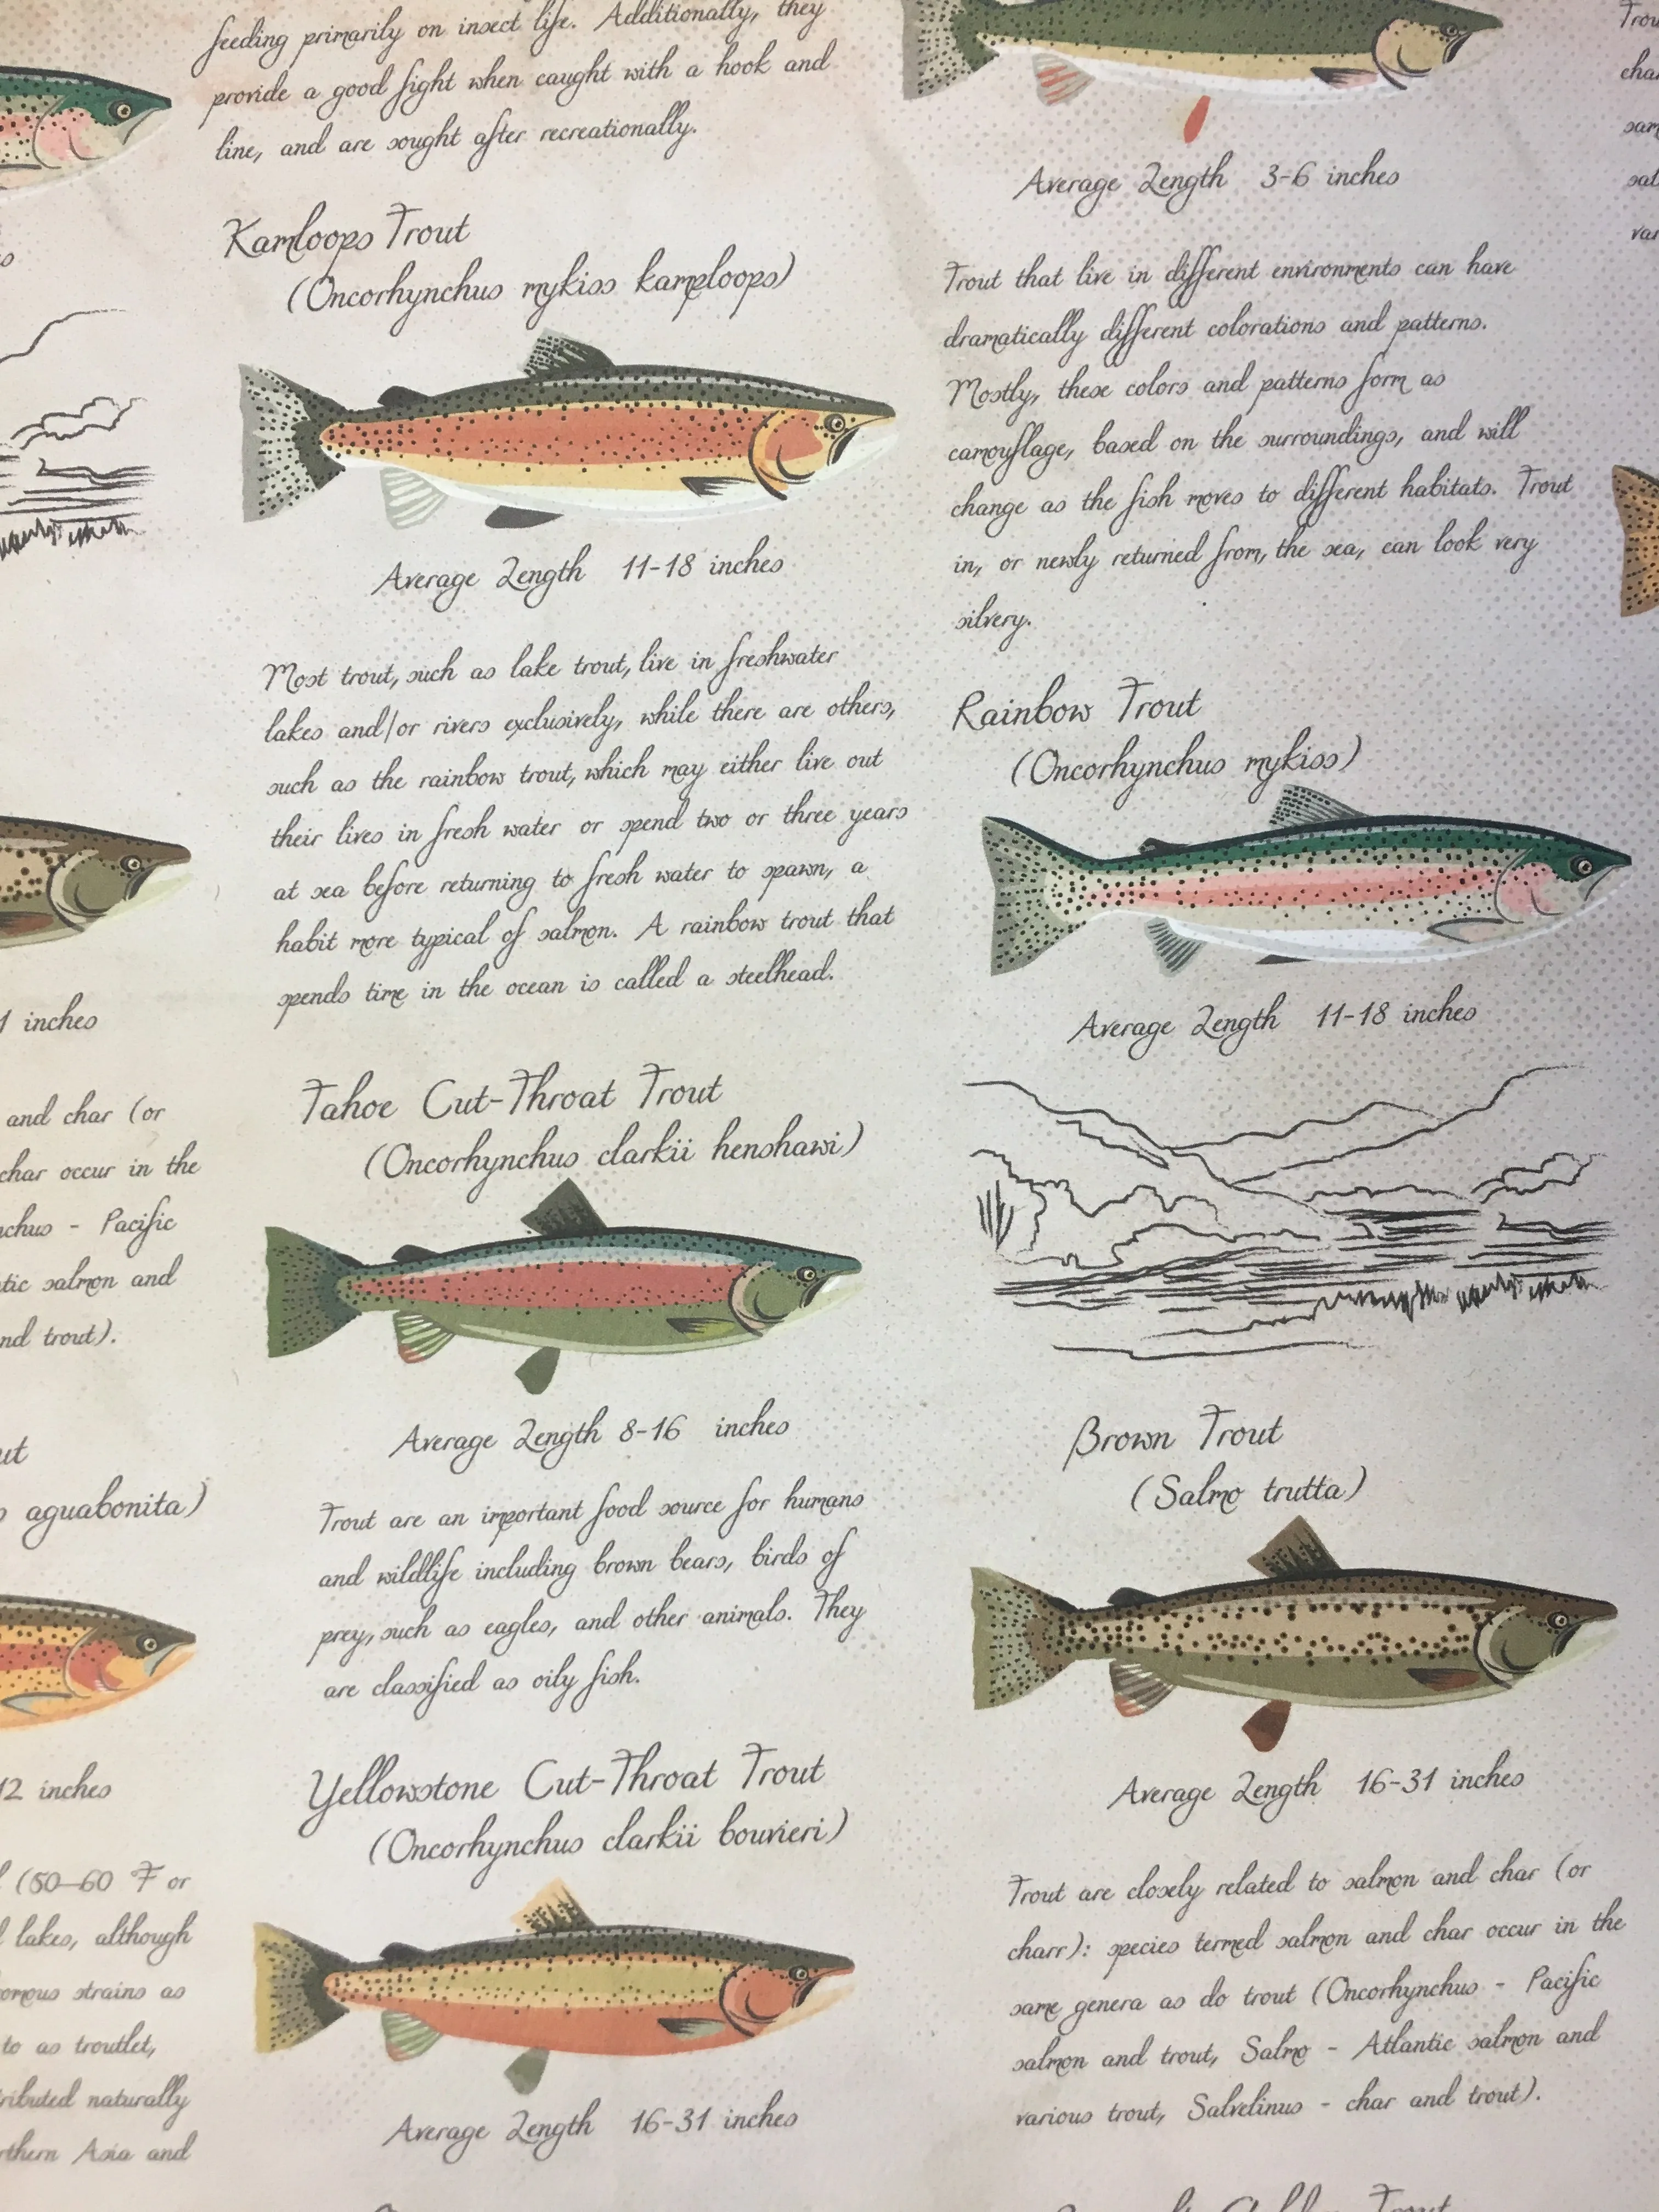 feeding primarily on insect life. Additionally, they
provide a good fight when caught with a hook and
line, and are sought after recreationally.
Kamloops Trout
(Oncorhynchus mykiss kamploops)
Average Length 11-18 inches
Most trout, such as lake trout, live in freshwater
lakes and/or rivers exclusively, while there are others,
such as the rainbow trout, which may either live out
their lives in fresh water or spend two or three years
at sea before returning to fresh water to spawn, a
habit more typical of salmon. A rainbow trout that
spends time in the ocean is called a steelhead.
Tahoe Cut-Throat Trout
(Oncorhynchus clarkii henshawi)
Average Length 8-16 inches
Trout are an important food source for humans
and wildlife including brown bears, birds of
prey, such as eagles, and other animals. They
are classified as oily fish.
Yellowstone Cut-Throat Trout
(Oncorhynchus clarkii bouvieri)
Average Length 16-31 inches
Average Length 3-6 inches
Trout that live in different environments can have
dramatically different colorations and patterns.
Mostly, these colors and patterns form as
camouflage, based on the surroundings, and will
change as the fish moves to different habitats. Trout
in, or newly returned from, the sea, can look very
silvery.
Rainbow Trout
(Oncorhynchus mykiss)
Average Length 11-18 inches
Brown Trout
(Salmo trutta)
Average Length 16-31 inches
Trout are closely related to salmon and char (or
charr): species termed salmon and char occur in the
same genera as do trout (Oncorhynchus - Pacific
salmon and trout, Salmo - Atlantic salmon and
various trout, Salvelinus - char and trout).
inches
and char (or
char occur in the
- Pacific
salmon and
trout).
aguabonita)
12 inches
(50-60 °F or
lakes, although
strains as
to as troutlet,
naturally
Asia and
Trout